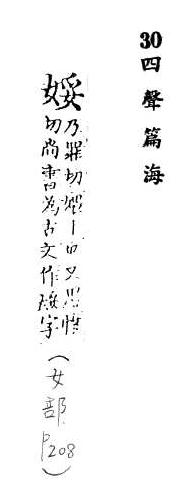 30 四聲篇海
娞
乃罪切口又思惟
切尚書為古文作字
(女部 P208)